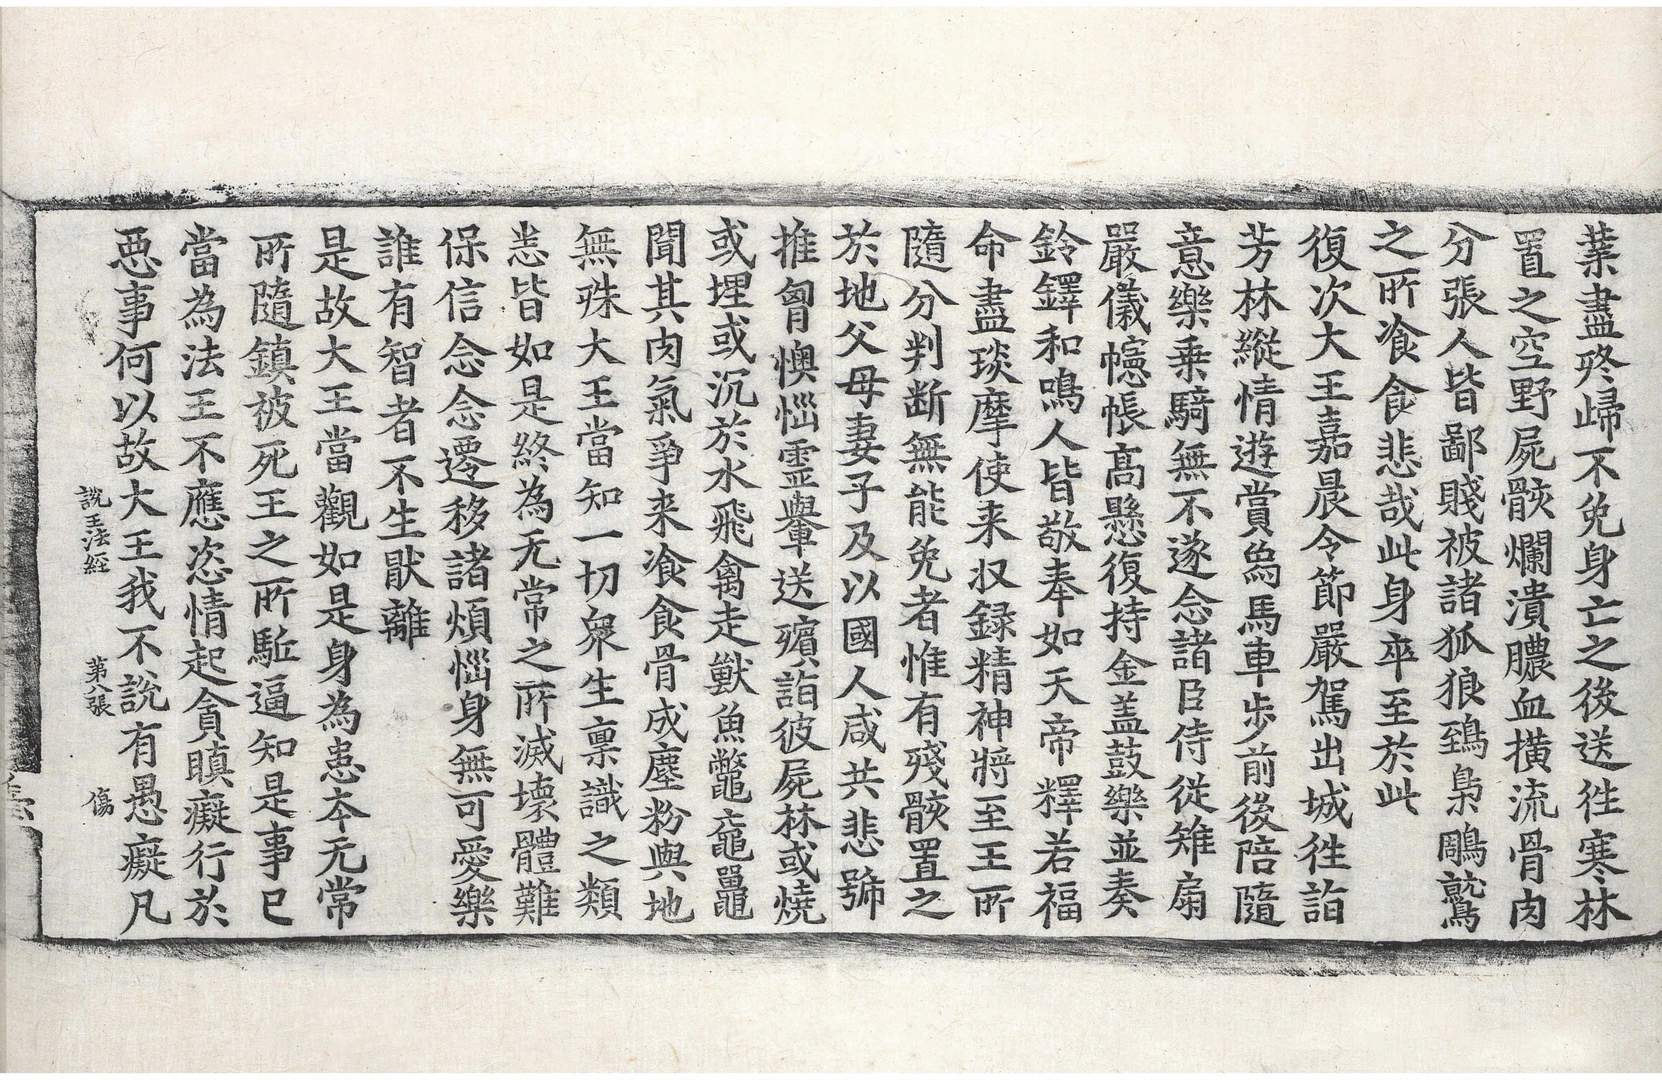 業盡終歸不免身亡之後送往寒林
置之空野屍骸爛潰膿血橫流骨肉
分張人皆鄙賤被諸狐狼鵄梟鵰鷲
之所飡食悲哉此身卒至於此
復次大王嘉晨令節嚴駕出城往詣
芳林縱情遊賞烏馬車步前後陪隨
意樂乗騎無不遂念諸臣侍從雉扇
嚴儀幰帳高懸復持金盖鼓樂並奏
鈴鐸和鳴人皆敬奉如天帝釋若福
命盡琰摩使来収録精神將至王所
隨分判断無能免者惟有殘骸置之
於地父母妻子及以國人咸共悲號
推胷懊惱霊轝送殯詣彼屍林或燒
或埋或沉於水飛禽走獸魚鼈黿鼉
聞其肉氣爭来飡食骨成塵粉與地
無殊大王當知一切衆生稟識之類
恙皆如是終為无常之所滅壞體難
保信念念遷移諸煩惱身無可愛樂
誰有智者不生猒離
是故大王當觀如是身為患本无常
所隨鎮被死王之所駈逼知是事已
當為法王不應恣情起貪瞋癡行於
惡事何以故大王我不說有愚癡凡
說王法經 第八張 傷